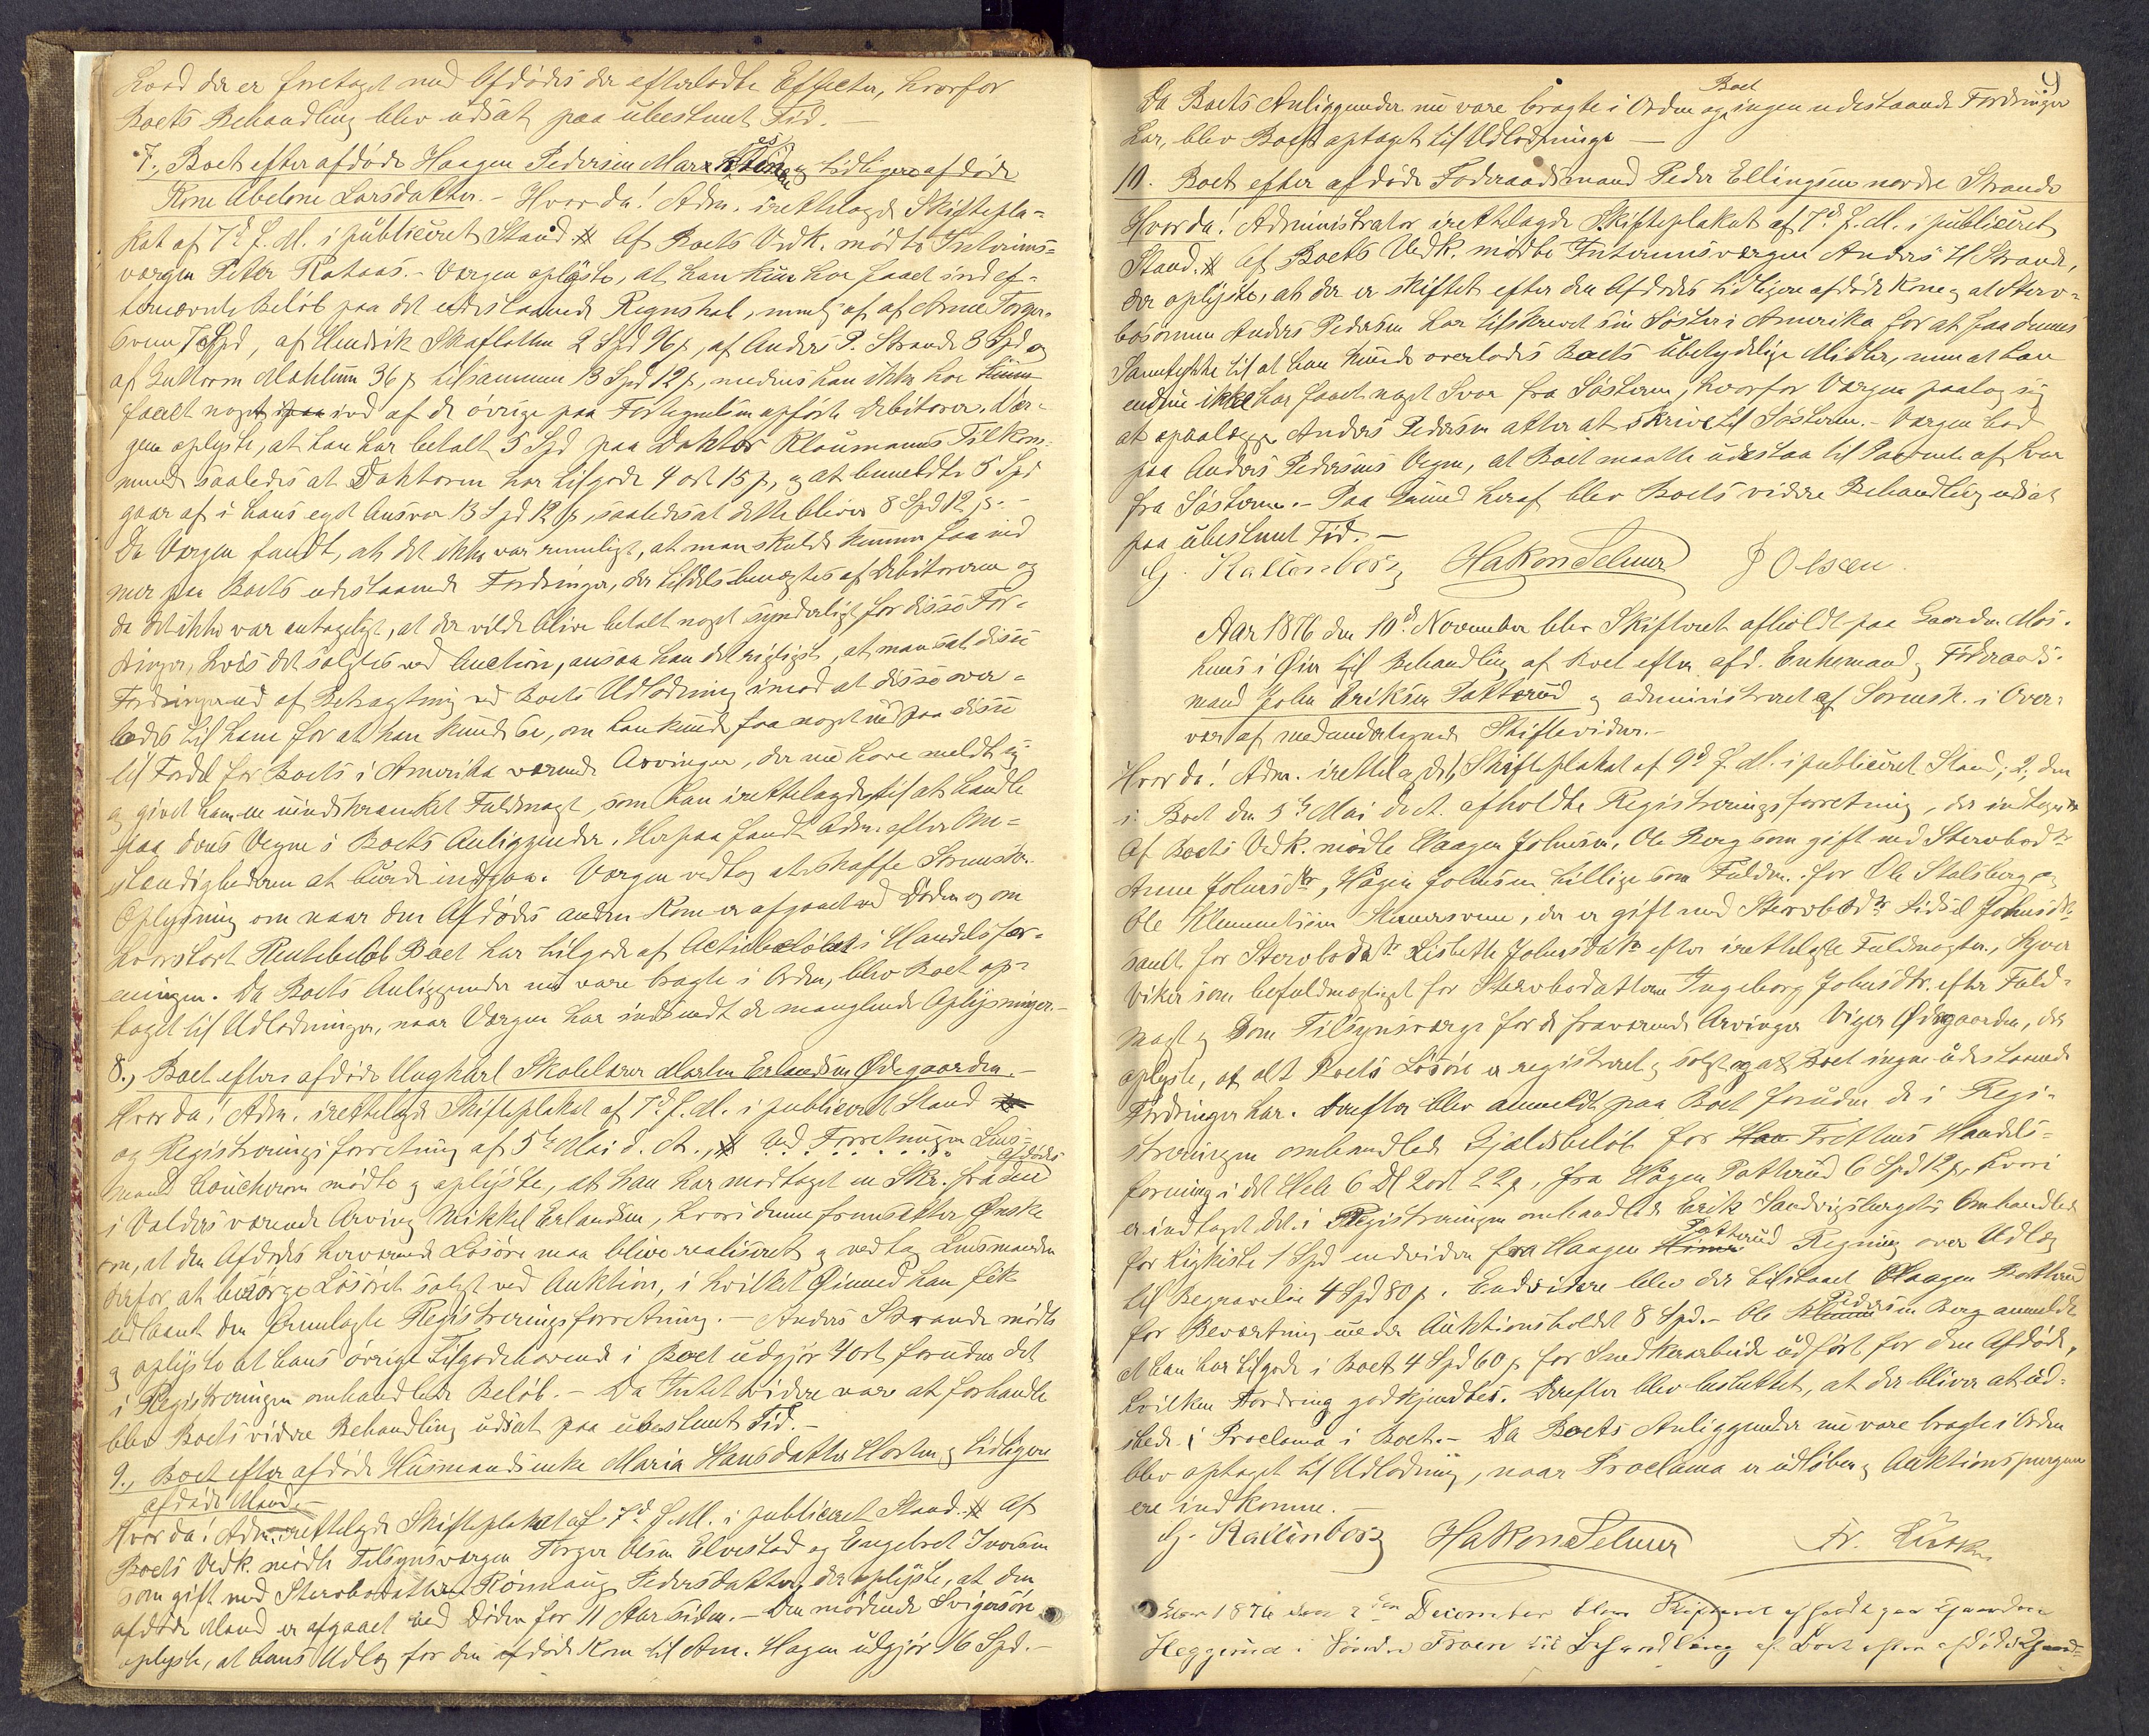 hvad der er foretaget med Afdødes der efterladte Effecter, hvorfor
Boets Behandling blev udsat paa ubestemt Tid. —
7., Boet efter afdøde Haagen Pedersen og tidligere afdøde
Kone Abelone Larsdatter. - Hvorda! Adm. irettelagde Skiftepla-
kat af 7d f. M. i publiceret Stand. Af Boets Vedk. mødte Interims-
værgen Peter Rataas. - Værgen oplyste, at han kun har faaet ind ef-
ternævnte Beløb paa det udestaaende Regnskab, nemlig af Arne Torger-
sveen 7 Spd, af Hendrik Skaflotten 2 Spd 96 s, af Anders P. Strande 3 Spd og
af Guttorm Mæhlum 36 s tilsammen 13 Spd 12 s, medens han ikke har kunnet
faaet noget ind af de øvrige paa Fortegnelsen opførte Debitorer. Vær-
gen oplyste, at han har betalt 5 Spd paa Doktor Kloumanns Tilkom-
mende saaledes at Doktoren har tilgode 4 ort 15 s, og at bemeldte 5 Spd
gaar af i hans eget Ansvar 13 Spd 12 s, saaledes at dette bliver 8 Spd 12 s. -
Da Værgen fandt, at det ikke var rimeligt, at man skulde kunne faa ind
mer paa Boets udestaaende Fordringer, der tildels benægtes af Debitorerne og
da det ikke var antageligt, at der vilde blive betalt noget synderligt for disse For-
dringer, hvis det solgtes ved Auction, ansaa han det rigtigst, at man sat disse
Fordringer ud af Betragtning ved Boets Udlodning imod at disse over-
lodes til ham for at han kunde se, om han kunde faa noget ind paa disse
til Fordel for Boets i Amerika værende Arvinger, der nu have meldt sig
og givet ham en uindskrænket Fuldmagt, som han irettelagde, til at handle
paa deres Vegne i Boets Anliggender. Herpaa fandt Adm. efter Om-
stændighederne at burde indgaa. Værgen vedtog at skaffe Sorensk.
Oplysning om naar den Afdødes anden Kone er afgaaet ved Døden og om
hvorstort Rentebeløb Boet har tilgode af Actiebeløbet i Handelsfor-
eningen. Da Boets Anliggender nu vare bragte i Orden, blev Boet op-
taget til Udlodninger, naar Værgen har indsendt de manglende Oplysninger. -
8., Boet efter afdøde Ungkarl Skolelærer Martin Erlandsen Ødegaarden. -
Hvorda! Adm. irettelagde Skifteplakat af 7d f. M. i publiceret Stand
og Registreringsforretning af 5te Mai d. A., Ved Forretningen Lens-
mand Loucheron mødte og oplyste, at han har modtaget en Skr. fra den Afdødes
i Valders værende Arving Mikkel Erlandsen, hvori denne fremsætter Ønske
om, at den Afdødes herværende Løsøre maa blive realiseret og vedtog Lensmanden
derfor at besørge Løsøret solgt ved Auktion, i hvilket Øiemed han fik
udlaant den fremlagte Registreringsforretning. — Anders Strande mødte
og oplyste at hans øvrige Tilgodehavende i Boet udgjør 4 ort foruden det
i Registreringen omhandlede Beløb. - Da Intet videre var at forhandle
blev Boets videre Behandling udsat paa ubestemt Tid. -
9., Boet efter afdøde Husmandsenke Maria Hansdatter Horten og tidligere
afdøde Mand. -
Hvorda! Adm. irettelagde Skifteplakat af 7d f. M. i publiceret Stand. Af
Boets Vedk. mødte Tilsynsværgen Torger Olsen Elvestad og Engebret Iversen
som gift med Stervbodatteren Rønnaug Pedersdatter, der oplyste, at den
afdøde Mand er afgaaet ved Døden for 11 Aar siden. - Den mødende Svigersøn
oplyste, at hans Udlæg for den afdøde Kone til Arn. Hagen udgjør 16 Spd. -
9
Da Boets Anliggender nu vare bragte i Orden og Boet ingen udestaaende Fordringer
har, blev Boet optaget til Udlodninge —
10. Boet efter afdøde Føderaadsmand Peder Ellingsen nordre Strande
Hvorda! Administrator irettelagde Skifteplakat af 7d f. M. i publiceret
Stand. Af Boets Vedk. mødte Interimsværgen Anders H Strande,
der oplyste, at der er skiftet efter den Afdødes tidligere afdøde Kone og at Sterv-
bosønnen Anders Pedersen har tilskrevet sin Søster i Amerika for at faa dennes
Samtykke til at han kunde overlades Boets ubetydelige Midler, men at han
endnu ikke har faaet noget Svar fra Søsteren, hvorfor Værgen paatog sig
at paalægge Anders Pedersen atter at skrive til Søsteren. - Værgen bad
paa Anders Pedersens Vegne, at Boet maatte udestaa til Svar
fra Søsteren. - Paa Grund heraf blev Boets videre Behandling udsat
paa ubestemt Tid. —
G. Kallenborg Hakon Selmer J Olsen
Aar 1876 den 10d November blev Skifteret afholdt paa Gaarden Mos-
hus i Øier til Behandling af Boet efter afd. Enkemand og Føderaads-
mand John Eriksen Pottrud og administreret af Sorensk. i Over-
vær af medundertegnede Skiftevidner. -
Hvorda! Adm. irettelagde 1, Skifteplakat af 9d f. M. i publiceret Stand; 2, den
i Boet den 5te Mai d. A. afholdte Registreringsforretning, der indtages
Af Boets Vedk. mødte Haagen Johnsen, Ole Berg som gift med Stervbodtr
Anne Johnsdtr, Hågen Johnsen tillige som Fuldm. for Ole Stalsberg og
Ole Klemmetsen, der er gift med Stervbodtr Sidsel Johnsdtr
samt for Stervbodatr Lisbeth Johnsdatr efter irettelagte Fuldmagter, Syver
Viker som befuldmægtiget for Stervbodatteren Ingeborg Johnsdtr. efter Fuld-
magt og som Tilsynsværge for de fraværende Arvinger Viger Ødegaarden, der
oplyste, at alt Boets Løsøre er registreret og solgt og at Boet ingen udestaaende
Fordringer har. Derefter blev anmeldt paa Boet foruden de i Regi-
streringen omhandlede Gjældsbeløb for Frettens Handels-
forening i det Hele 6 Dl 2 ort 22 s, fra Hågen Pottrud 6 Spd 12 s, hvori
er indtaget det i Registreringen omhandlede Erik Sandvigsbergets Omhandlede
for Ligkiste 1 Spd endvidere fra Haagen Pottrud Regning over Udlæg
til Begravelse 4 Spd 80 s. Endvidere blev der tilstaaet Haagen Pottrud
for Beværtning under Auktionsholdet 8 Spd. - Ole Pedersen Berg anmeldte
at han har tilgode i Boet 4 Spd 60 s for Snedkerarbeide udført for den Afdøde,
hvilken Fordring godkjendtes. Derefter blev besluttet, at der bliver at ud-
stede Proclama i Boet. - Da Boets Anliggender nu vare bragte i Orden
blev optaget til Udlodning, naar Proclama er udløben og Auktionspengene
ere indkomne. -
G. Kallenborg Hakon Selmer Fr. Lütken
Aar 1876 den 2den December blev Skifteret afholdt paa Gaarden
Heggerud i Søndre Froen til Behandling af Boet efter afdøde Gaard-